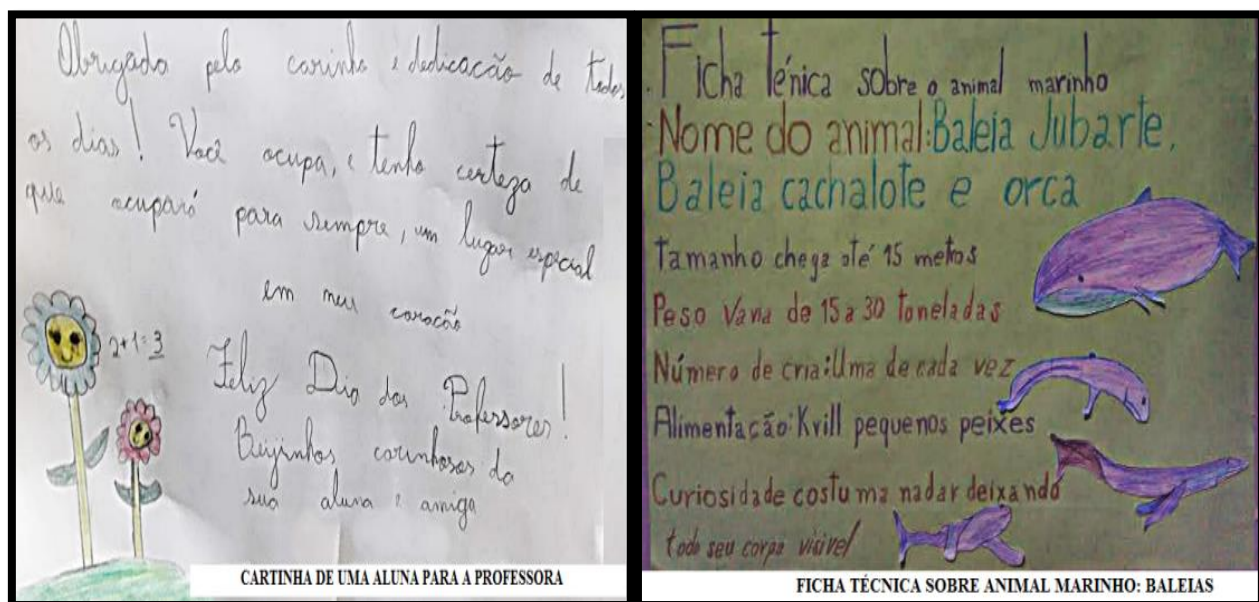 Obrigado pelo carinho e dedicação de todos
os dias! Você ocupa, e tenho certeza de
que ocupará para sempre, um lugar especial
em meu coração
2+1=3
Feliz Dia dos Professores!
Beijinhos carinhosos da
sua aluna e amiga
CARTINHA DE UMA ALUNA PARA A PROFESSORA
Ficha Ténica sobre o animal marinho
Nome do animal:Baleia Jubarte,
Baleia cachalote e orca
Tamanho chega até 15 metros
Peso Varia de 15 a 30 toneladas
Número de cria:Uma de cada vez
Alimentação:Krill pequenos peixes
Curiosidade costuma nadar deixando
todo seu corpo visivel
FICHA TÉCNICA SOBRE ANIMAL MARINHO: BALEIAS